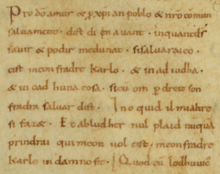 Pro dõ amur & pxp̃ian poblo & nr̃o comun
saluament. dist di en auant. inquantdſ
sauir & podir medunat. sisaluaraieo.
cist meon fradre Karlo. & in adiudha.
& in cad huna cosa. sicu om p dreit son
fradra saluar dist. Ino quid il mialtre
si fazet. Et abludher nul plaid nuquã
prindrai qui meon uol cist. meon fradre
Karle in damno sit. Quod cũ lodhuuic